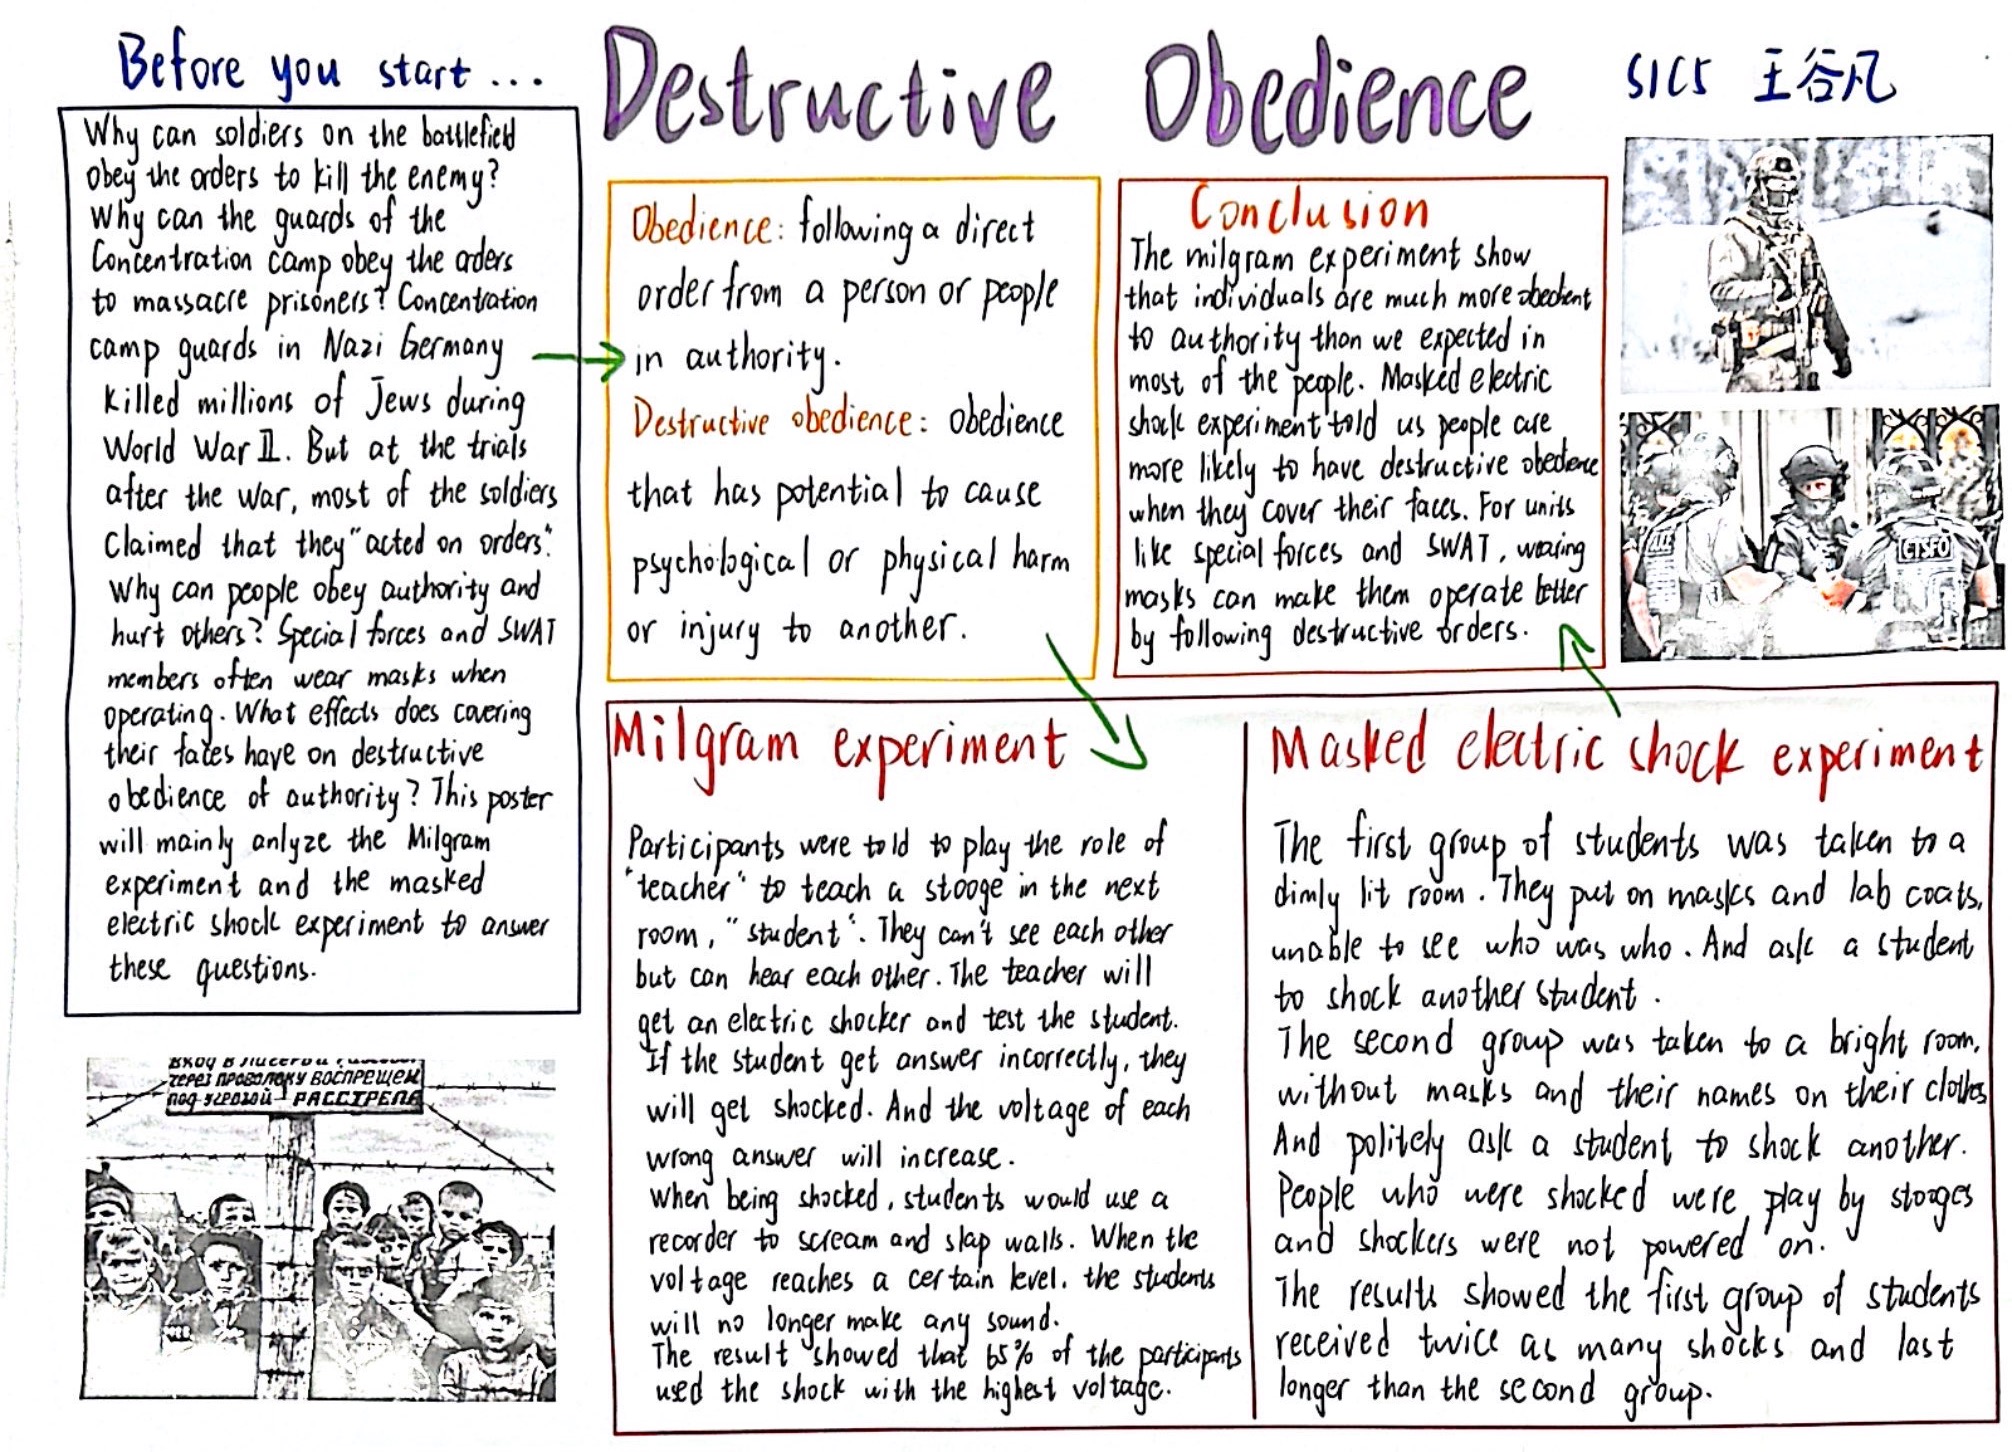 Before you start ...
Why can soldiers on the battlefield
obey the orders to kill the enemy?
Why can the guards of the
Concentration camp obey the orders
to massacre prisoners? Concentration
camp guards in Nazi Germany
killed millions of Jews during
World War II. But at the trials
after the war, most of the soldiers
Claimed that they "acted on orders".
Why can people obey authority and
hurt others? Special forces and SWAT
members often wear masks when
operating. What effects does covering
their faces have on destructive
obedience of authority? This poster
will mainly anlyze the Milgram
experiment and the masked
electric shock experiment to answer
these questions.
ТЕРЕЗ ПРОВОЛОКУ ВОСПРЕЩЕН
ПОД УГРОЗОЙ РАССТРЕЛА
Destructive Obedience
Obedience: following a direct
order from a person or people
in authority.
Destructive obedience: obedience
that has potential to cause
psychological or physical harm
or injury to another.
Conclusion
The milgram experiment show
that individuals are much more obedient
to authority than we expected in
most of the people. Masked electric
shock experiment told us people are
more likely to have destructive obedience
when they cover their faces. For units
like special forces and SWAT, wearing
masks can make them operate better
by following destructive orders.
S1C5 王谷凡
CTSFO
Milgram experiment
Participants were told to play the role of
"teacher" to teach a stooge in the next
room, "student". They can't see each other
but can hear each other. The teacher will
get an electric shocker and test the student.
If the student get answer incorrectly, they
will get shocked. And the voltage of each
wrong answer will increase.
When being shocked, students would use a
recorder to scream and slap walls. When the
voltage reaches a certain level, the students
will no longer make any sound.
The result showed that 65% of the participants
used the shock with the highest voltage.
Masked electric shock experiment
The first group of students was taken to a
dimly lit room. They put on masks and lab coats,
unable to see who was who. And ask a student
to shock another student.
The second group was taken to a bright room,
without masks and their names on their clothes
And politely ask a student to shock another.
People who were shocked were play by stooges
and shockers were not powered on.
The results showed the first group of students
received twice as many shocks and last
longer than the second group.